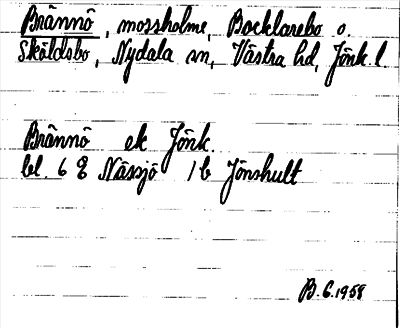 Brännö, mossholme, Bocklarebo o.
Sköldsbo, Nydala sn, Västra hd, Jönk. l
Brännö ek Jönk.
bl. 6 8 Nässjö 1 b Jönshult
B. G. 1958